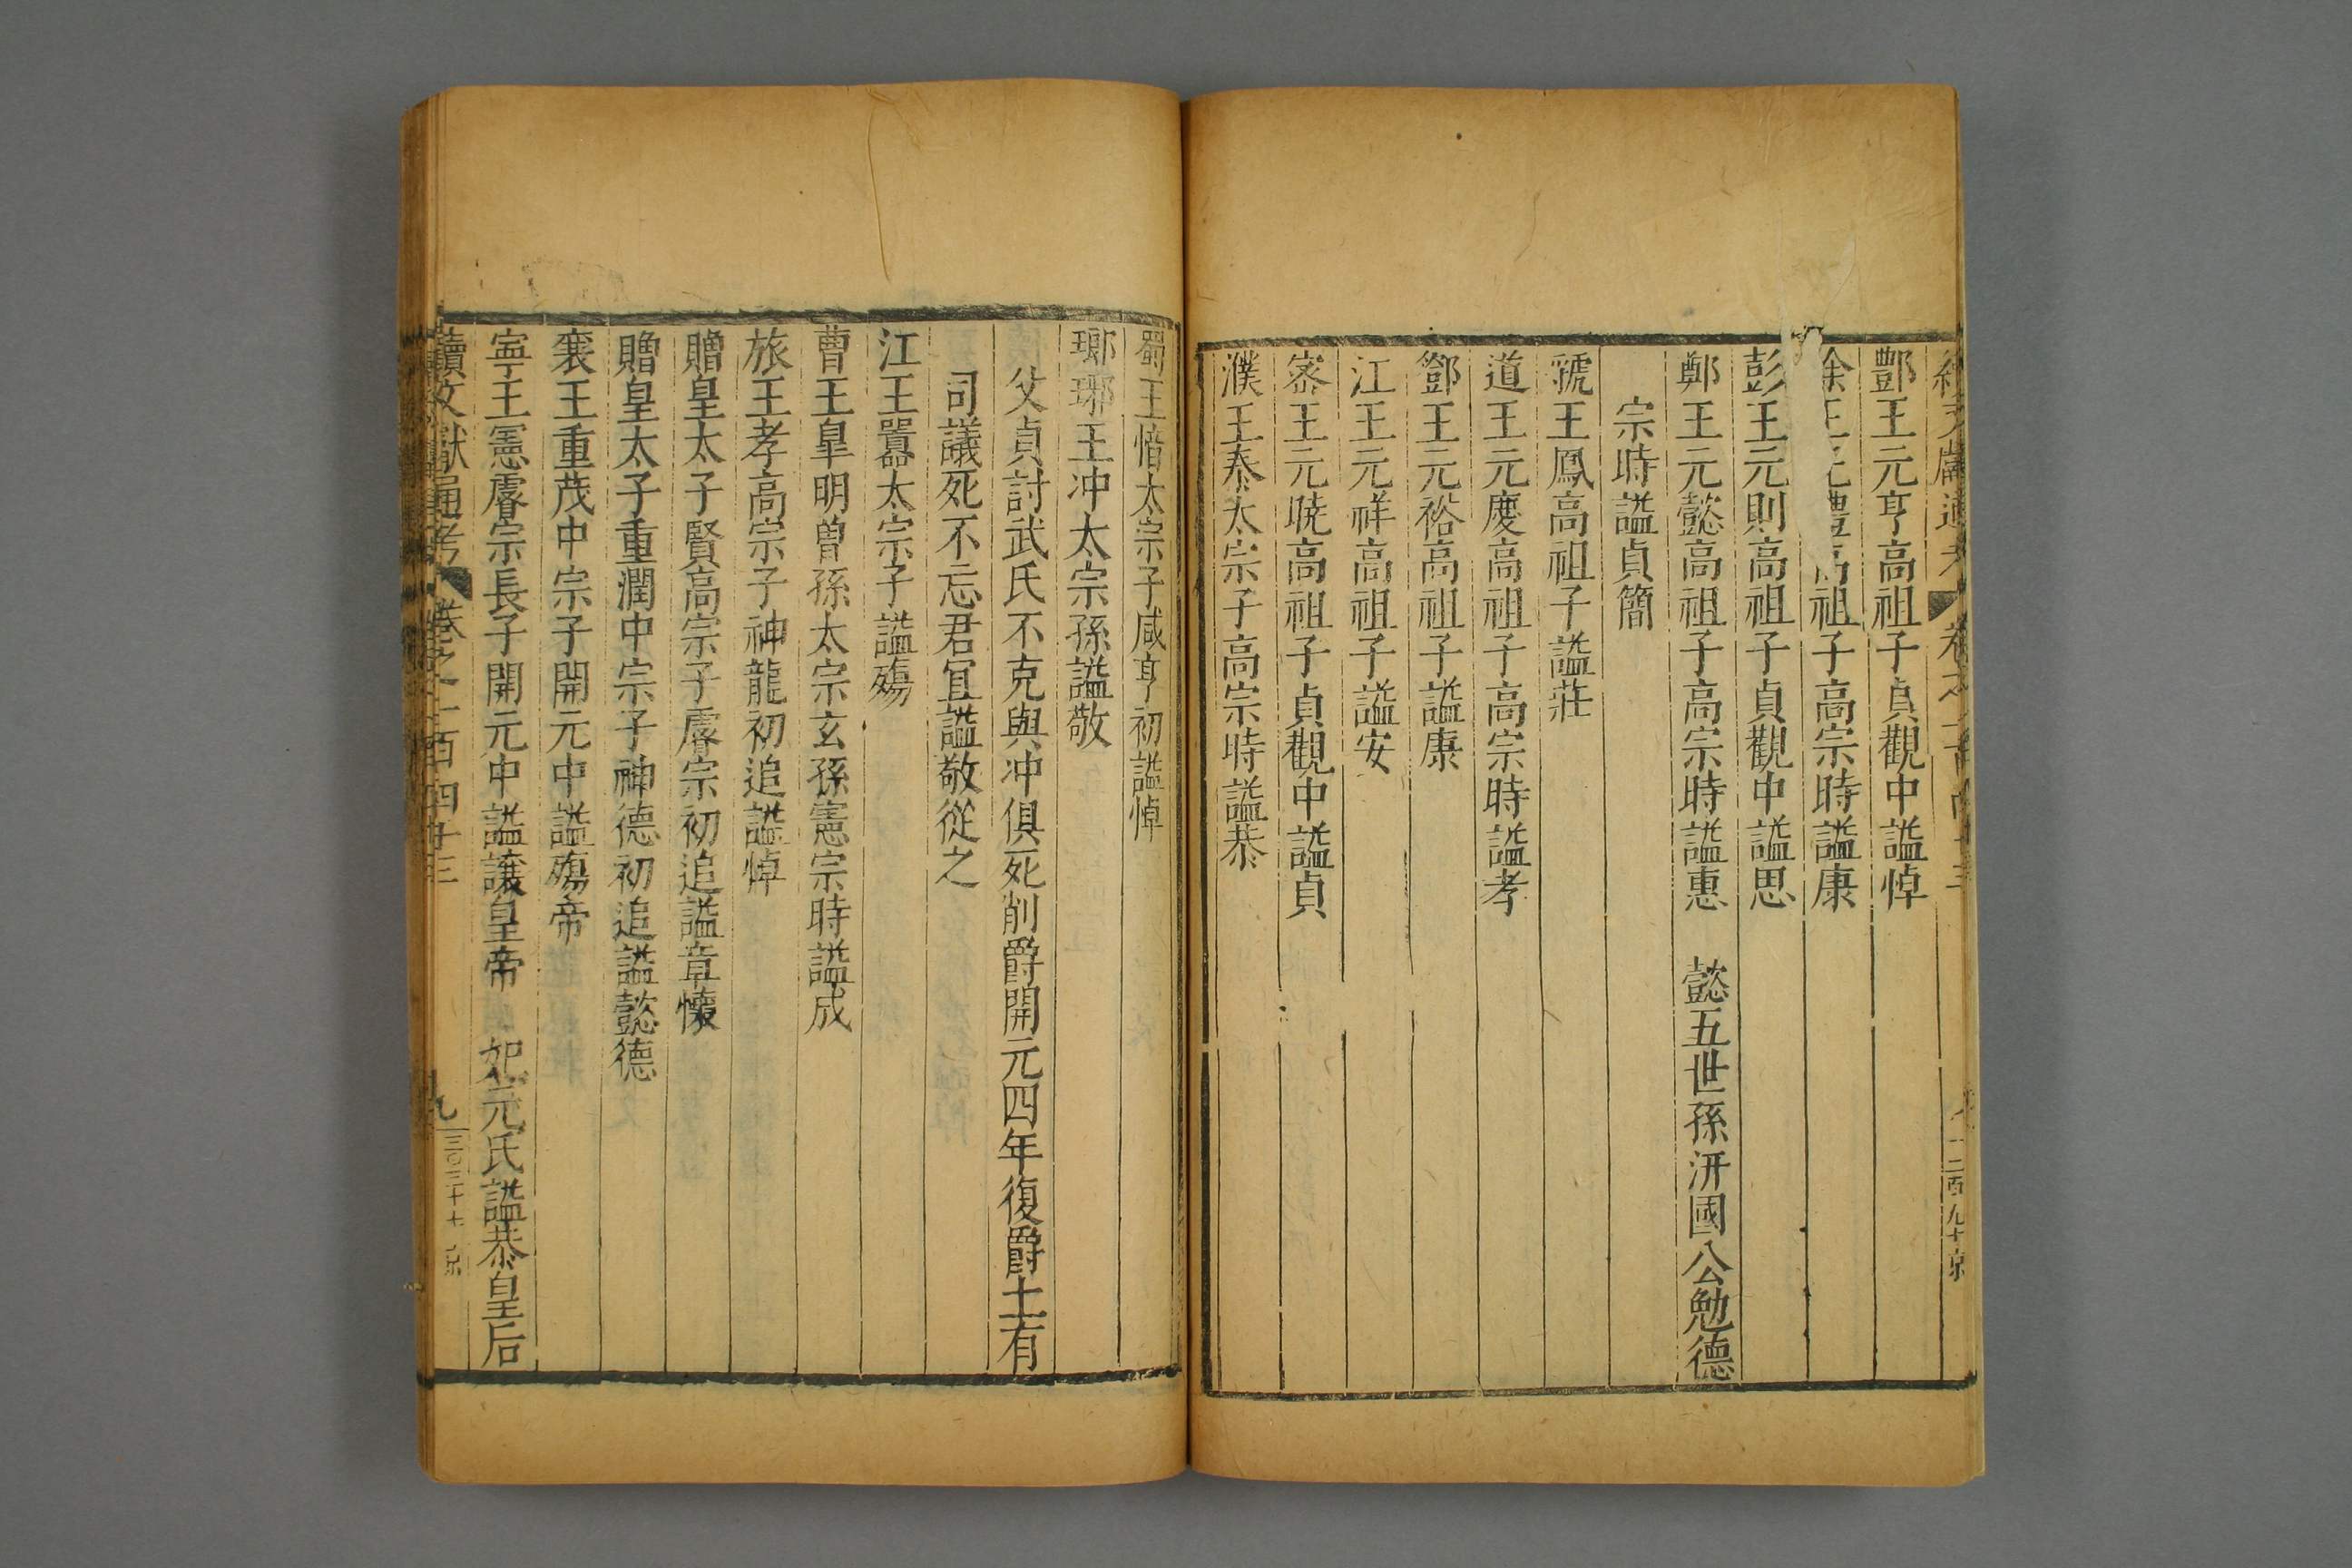 酆王元亨高祖子貞觀中謚悼
祖子高宗時謚康
彭王元則高祖子貞觀中謚思
鄭王元懿高祖子高宗時謚惠 懿五世孫汧國公勉德
宗時謚貞簡
虢王鳳高祖子謚莊
道王元慶高祖子高宗時謚孝
鄧王元裕高祖子謚康
江王元祥高祖子謚安
宻王元曉高祖子貞觀中謚貞
濮王泰太宗子高宗時謚恭
蜀王愔太宗子咸亨初謚悼
瑯琊王冲太宗孫謚敬
父貞討武氏不克與冲俱死削爵開元四年復爵土有
司議死不忘君宜謚敬從之
江王囂太宗子謚殤
曹王臯明曾孫太宗玄孫憲宗時謚成
旅王孝高宗子神龍初追謚悼
贈皇太子賢高宗子睿宗初追謚章懷
贈皇太子重潤中宗子神德初追謚懿德
襄王重茂中宗子開元中謚殤帝
寧王憲睿宗長子開元中謚讓皇帝 妃元氏謚恭皇后
續文獻通考 卷之一百四十三